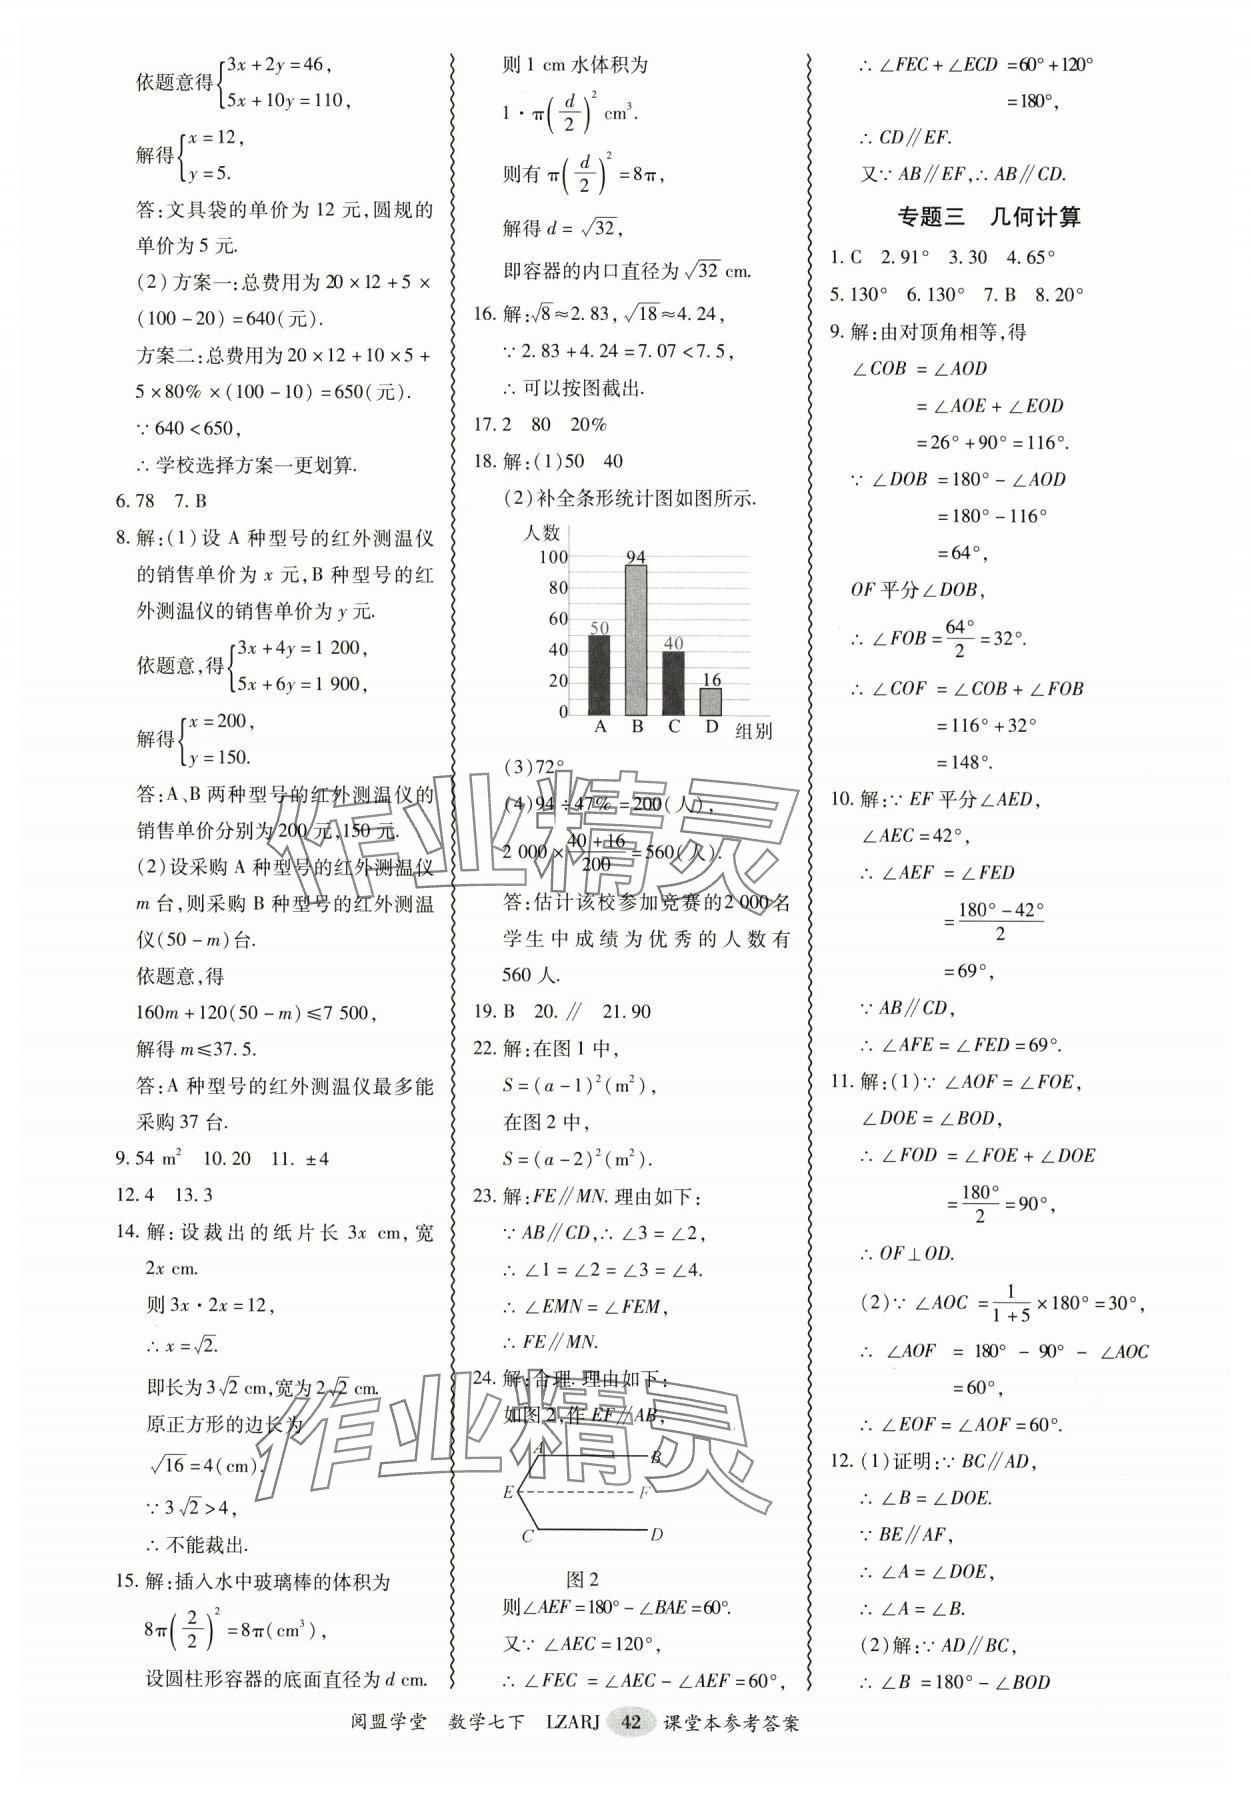 依题意得{3x+2y=46,
5x+10y=110,
解得{x=12,
y=5.
答:文具袋的单价为 12 元,圆规的
单价为 5 元.
(2)方案一:总费用为 20×12+5×
(100-20)=640(元).
方案二:总费用为 20×12+10×5+
5×80%×(100-10)=650(元).
∵640<650,
∴学校选择方案一更划算.
6.78 7.B
8.解:(1)设 A 种型号的红外测温仪
的销售单价为 x 元,B 种型号的红
外测温仪的销售单价为 y 元.
依题意,得{3x+4y=1 200,
5x+6y=1 900,
解得{x=200,
y=150.
答:A、B 两种型号的红外测温仪的
销售单价分别为 200 元,150 元.
(2)设采购 A 种型号的红外测温仪
m 台,则采购 B 种型号的红外测温
仪(50-m)台.
依题意,得
160m+120(50-m)≤7 500,
解得 m≤37.5.
答:A 种型号的红外测温仪最多能
采购 37 台.
9.54 m² 10.20 11. ±4
12.4 13.3
14.解:设裁出的纸片长 3x cm,宽
2x cm.
则 3x·2x=12,
∴x=√2.
即长为 3√2 cm,宽为 2√2 cm.
原正方形的边长为
√16=4(cm).
∵3√2>4,
∴不能裁出.
15.解:插入水中玻璃棒的体积为
8π(2/2)²=8π(cm³),
设圆柱形容器的底面直径为 d cm.
则 1 cm 水体积为
1·π(d/2)² cm³.
则有 π(d/2)²=8π,
解得 d=√32,
即容器的内口直径为√32 cm.
16.解:√8≈2.83,√18≈4.24,
∵2.83+4.24=7.07<7.5,
∴可以按图截出.
17.2 80 20%
18.解:(1)50 40
(2)补全条形统计图如图所示.
人数
100
80
60
40
20
0
50
94
40
16
A B C D 组别
(3)72°
(4)94÷47%=200(人),
2 000×(40+16)/200=560(人).
答:估计该校参加竞赛的2 000名
学生中成绩为优秀的人数有
560 人.
19.B 20.∥ 21.90
22.解:在图 1 中,
S=(a-1)²(m²),
在图 2 中,
S=(a-2)²(m²).
23.解:FE∥MN.理由如下:
∵AB∥CD,∴∠3=∠2,
∴∠1=∠2=∠3=∠4.
∴∠EMN=∠FEM,
∴FE∥MN.
24.解:合理.理由如下:
如图 2,作 EF∥AB,
A B
E F
C D
图 2
则∠AEF=180°-∠BAE=60°.
又∵∠AEC=120°,
∴∠FEC=∠AEC-∠AEF=60°,
∴∠FEC+∠ECD=60°+120°
=180°,
∴CD∥EF.
又∵AB∥EF,∴AB∥CD.
专题三 几何计算
1.C 2.91° 3.30 4.65°
5.130° 6.130° 7.B 8.20°
9.解:由对顶角相等,得
∠COB=∠AOD
=∠AOE+∠EOD
=26°+90°=116°.
∵∠DOB=180°-∠AOD
=180°-116°
=64°,
OF 平分∠DOB,
∴∠FOB=64°/2=32°.
∴∠COF=∠COB+∠FOB
=116°+32°
=148°.
10.解:∵EF 平分∠AED,
∠AEC=42°,
∴∠AEF=∠FED
=(180°-42°)/2
=69°,
∵AB∥CD,
∴∠AFE=∠FED=69°.
11.解:(1)∵∠AOF=∠FOE,
∠DOE=∠BOD,
∴∠FOD=∠FOE+∠DOE
=180°/2=90°,
∴OF⊥OD.
(2)∵∠AOC=1/(1+5)×180°=30°,
∴∠AOF=180°-90°-∠AOC
=60°,
∴∠EOF=∠AOF=60°.
12.(1)证明:∵BC∥AD,
∴∠B=∠DOE.
∵BE∥AF,
∴∠A=∠DOE,
∴∠A=∠B.
(2)解:∵AD∥BC,
∴∠B=180°-∠BOD
作业精灵
作业精灵
阅盟学堂 数学七下 LZARJ 42 课堂本参考答案